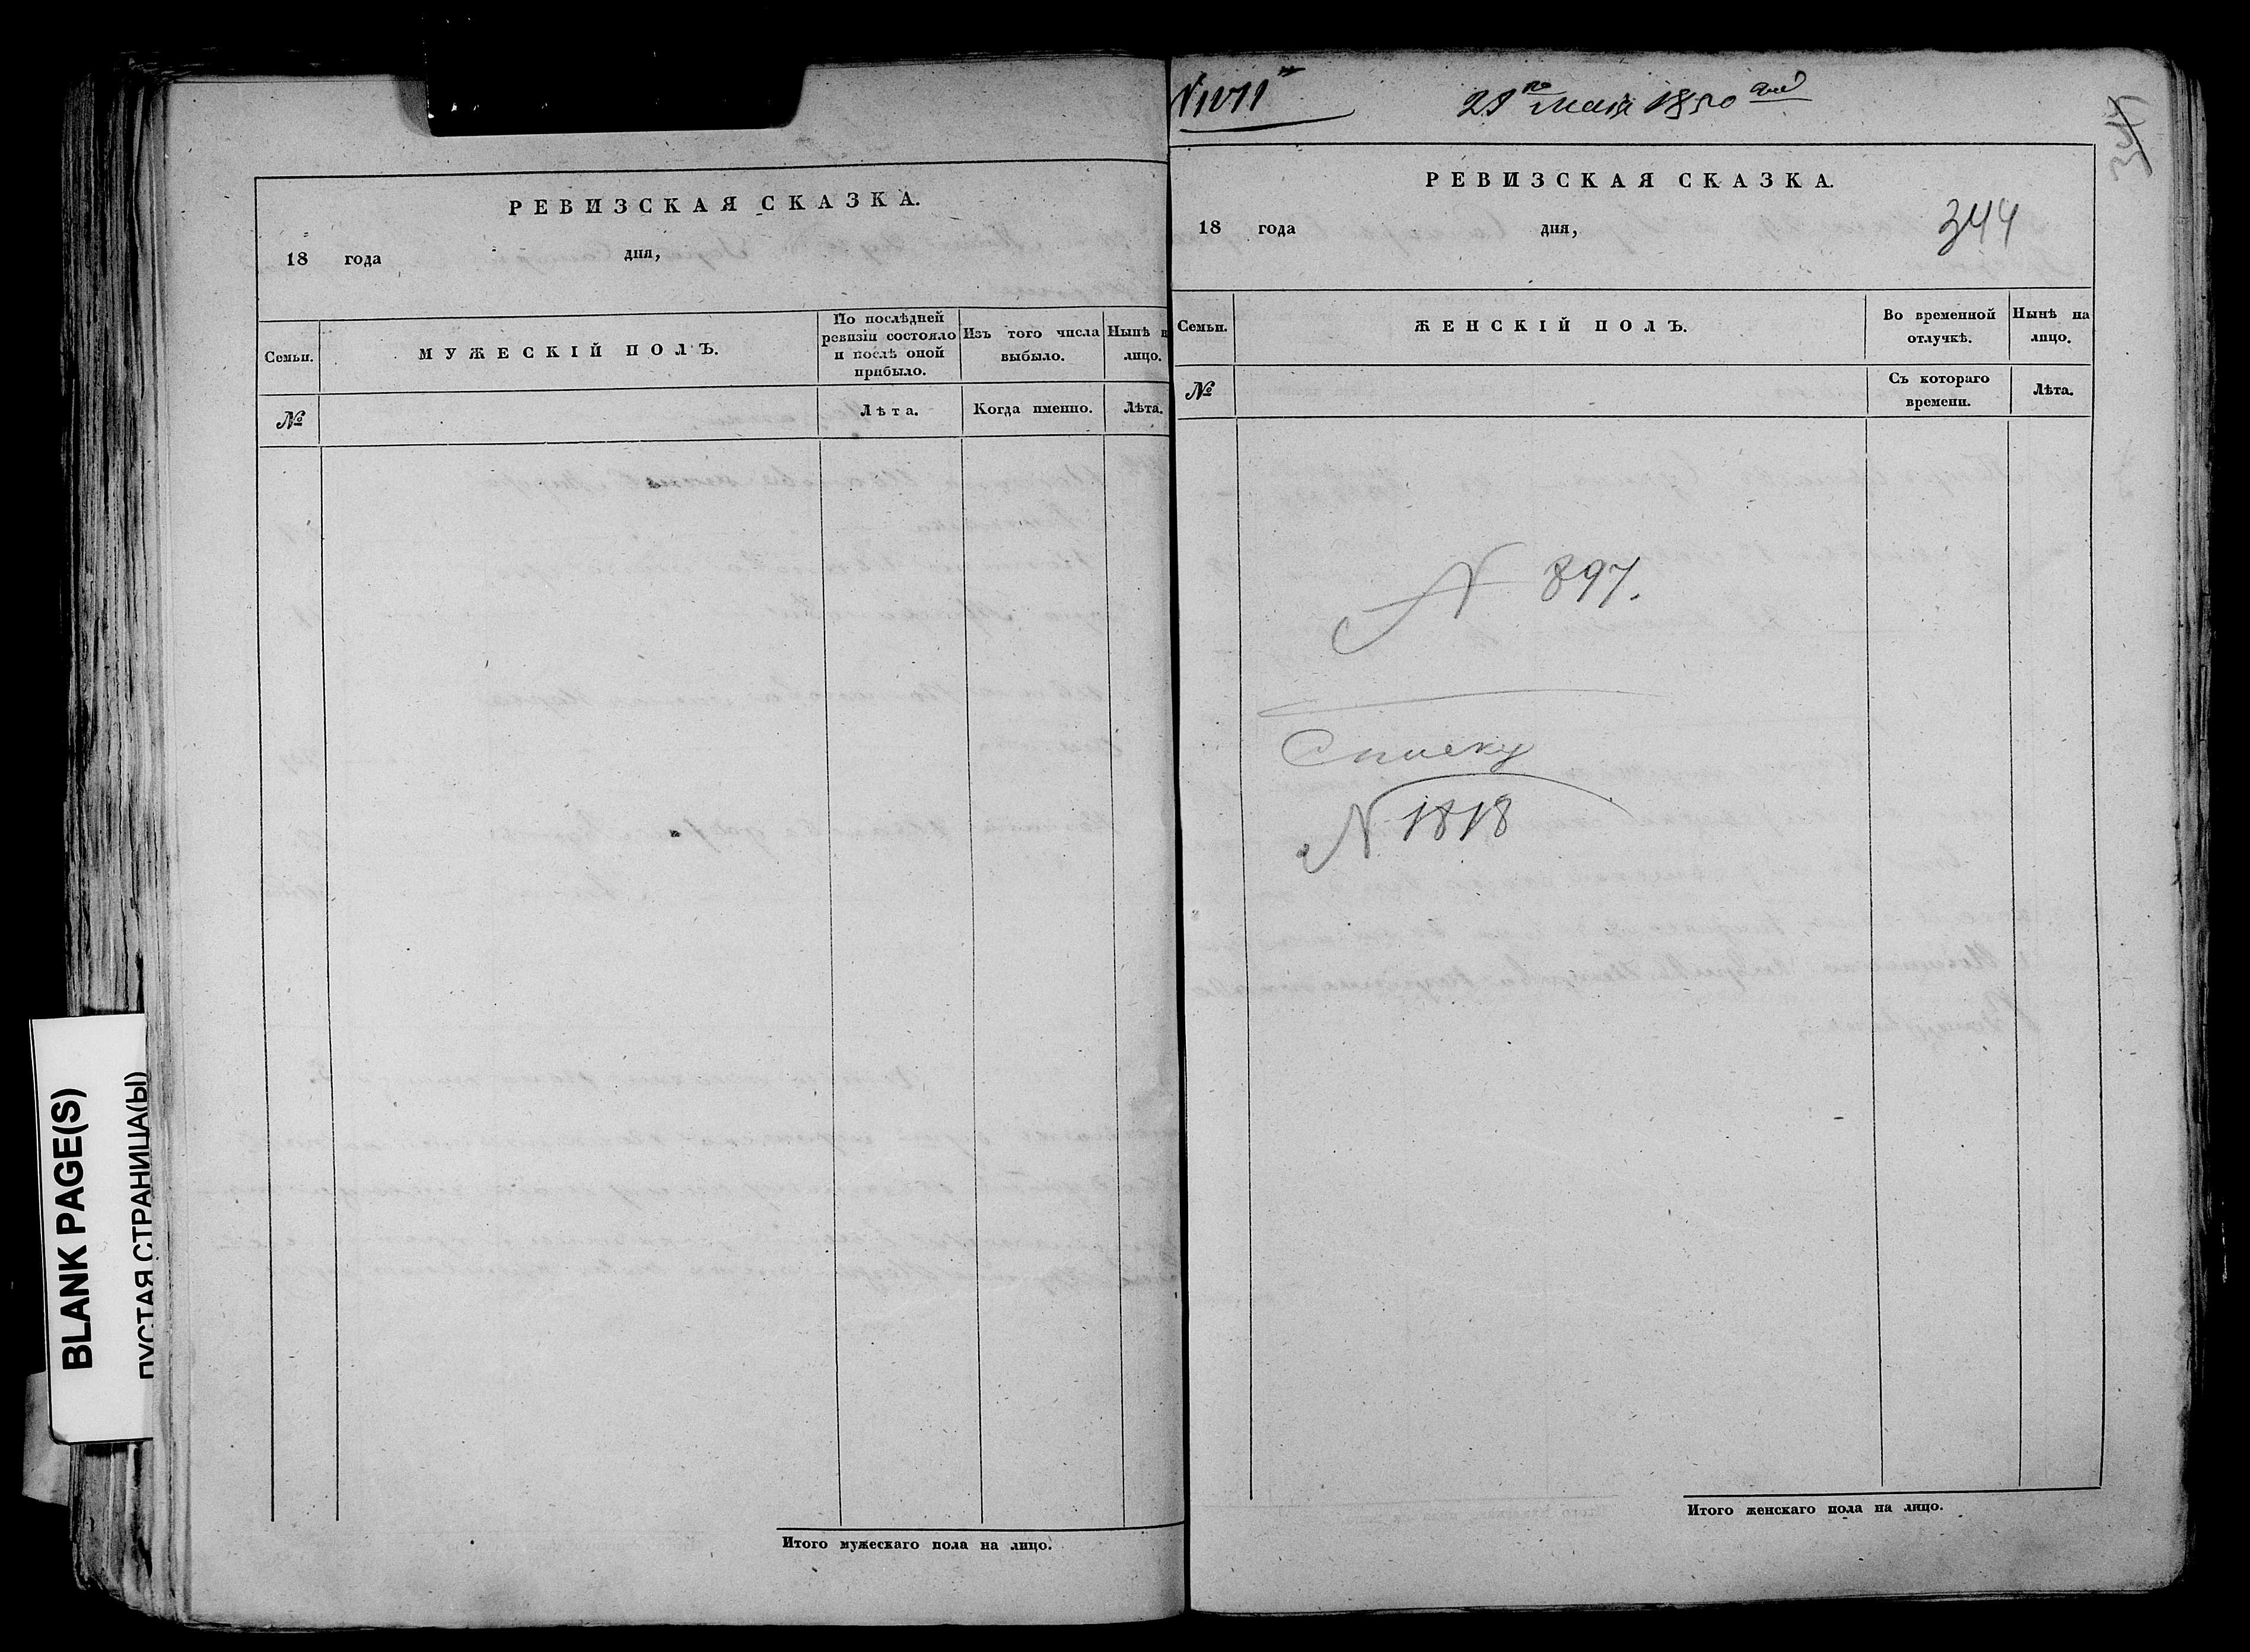 РЕВИЗСКАЯ СКАЗКА.
18 года дня,
Семьи.
МУЖЕСКІЙ ПОЛЪ.
По послѣдней
ревизіи состояло
и послѣ оной
прибыло.
Изъ того числа
выбыло.
Нынѣ
лицо.
№
Лѣта.
Когда именно.
Лѣта.
Итого мужескаго пола на лицо.
BLANK PAGE(S)
ПУСТАЯ СТРАНИЦА(Ы)
Мая 1850
РЕВИЗСКАЯ СКАЗКА.
18 года дня,
344
Семьи.
ЖЕНСКІЙ ПОЛЪ.
Во временной
отлучкѣ.
Нынѣ на
лицо.
№
Съ котораго
времени.
Лѣта.
N 897.
Списку
N 1818
Итого женскаго пола на лицо.